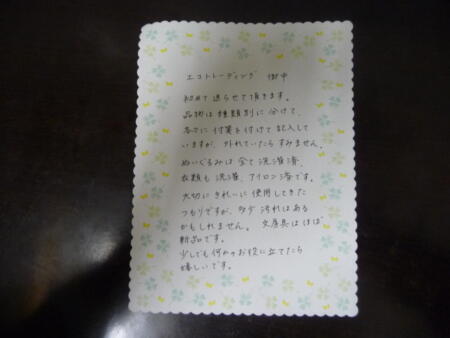 エコトレーディング 御中
初めて送らせて頂きます。
品物は種類別に分けて、
各々に付箋を付けて記入して
いますが、外れていたらすみません。
ぬいぐるみは全て洗濯済、
衣類も洗濯、アイロン済です。
大切にきれいに使用してきた
つもりですが、多少汚れはある
かもしれません。文房具はほぼ
新品です。
少しでも何かのお役に立てたら
嬉しいです。